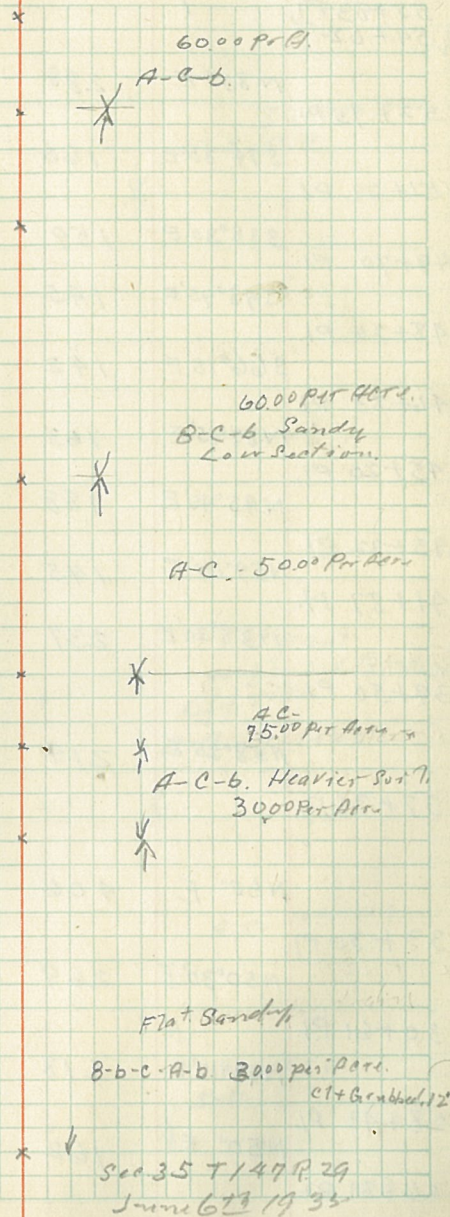 60.00 Pr A.
A-C-b.
60.00 per Acre.
B-C-b Sandy
Low Section.
A-C. - 50.00 Per Acre
A C-
75.00 per Acre
A-C-b. Heavier Soil.
30.00 Per Acre
Flat Sandy
B-b-c-A-b 30.00 per Acre.
Cl + Grubbed. 12
Sec 35 T 147 R 29
June 6th 1935